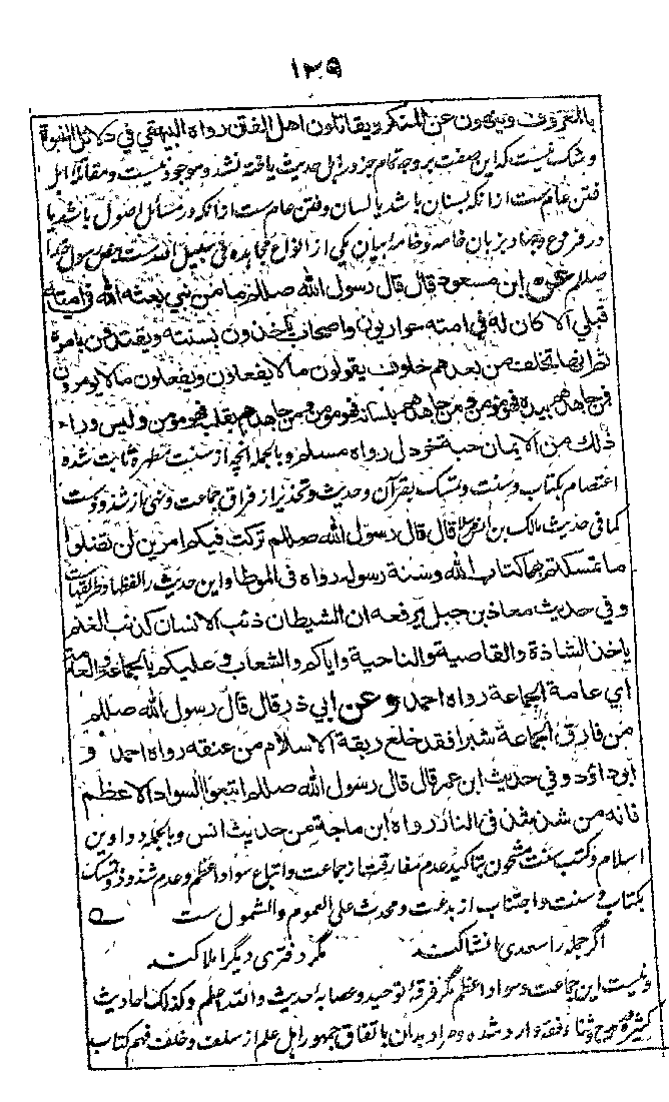 ۱۲۹
بالمعروف وینهون عن المنکر ویقاتلون اهل الفتن رواه البیهقی فی دلائل النبوة
وشک نیست که این صفت بر وجه تام جز در اهل حدیث یافته نشد وموجود نیست ومقاتله اهل
فتن عام ست ازانکه بسنان باشد یا لسان وفتن عام ست ازانکه در مسائل اصول باشد یا
در فروع وجهاد بزبان خاصه وخامهٔ بیان یکی از انواع مجاهده فی سبیل الله ست رسول خدا
صللم عن ابن مسعود قال قال رسول الله صللم ما من نبی بعثه الله فی امته
قبلی الا کان له فی امته حواریون واصحاب یأخذون بسنته ویقتدون بامره
ثم انها تخلف من بعدهم خلوف یقولون ما لا یفعلون ویفعلون ما لا یومرون
فمن جاهدهم بیده فهو مؤمن ومن جاهدهم بلسانه فهو مؤمن ومن جاهدهم بقلبه فهو مؤمن ولیس وراء
ذلک من الایمان حبة خردل رواه مسلم وبالجمله انچه از سنت مطهره ثابت شده
اعتصام بکتاب وسنت وتمسک بقرآن وحدیث وتحذیر از فراق جماعت ونهی از شذوذ ست
کما فی حدیث مالک بن انس قال قال رسول الله صللم ترکت فیکم امرین لن تضلوا
ما تمسکتم بهما کتاب الله وسنة رسوله رواه فی الموطا واین حدیث را الفظها وطریقهاست
وفی حدیث معاذ بن جبل یرفعه ان الشیطان ذئب الانسان کذئب الغنم
یاخذ الشاذة والقاصیة والناحیة وایاکم والشعاب وعلیکم بالجماعة والعامة
ای عامة الجماعة رواه احمد وعن ابی ذر قال قال رسول الله صللم
من فارق الجماعة شبرا فقد خلع ربقة الاسلام من عنقه رواه احمد و
ابوداؤد وفی حدیث ابن عمر قال قال رسول الله صللم اتبعوا السواد الاعظم
فانه من شذ شذ فی النار رواه ابن ماجة من حدیث انس وبالجمله دواوین
اسلام وکتب سنت مشحون بتاکید عدم مفارقت از جماعت واتباع سواد اعظم وعدم شذوذ وتمسک
بکتاب وسنت واجتناب از بدعت ومحدث علی العموم والشمول ست
اگر جمله را سعدی انشا کند مگر دفتری دیگر املا کند
ونیست این جماعت وسواد اعظم مگر فرقهٔ توحید وعصابهٔ حدیث والله اعلم وکذلک احادیث
کثیره در مدح وثناء فقه وارد شده ومراد بدان باتفاق جمهور اهل علم از سلف وخلف فهم کتاب